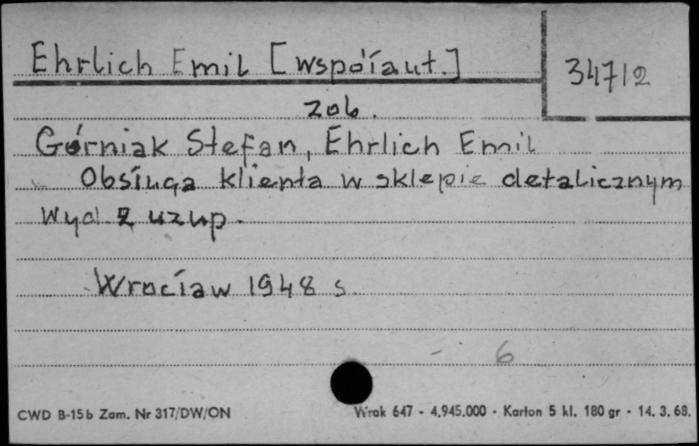 Ehrlich Emil [współaut.]
34712
zob.
Górniak Stefan, Ehrlich Emil
Obsługa klienta w sklepie detalicznym
Wyd 2 uzup.
Wrocław 1948 s
- 6
CWD B-15b Zam. Nr 317/DW/ON Wrak 647 - 4.945.000 - Karton 5 kl. 180 gr - 14. 3. 68.